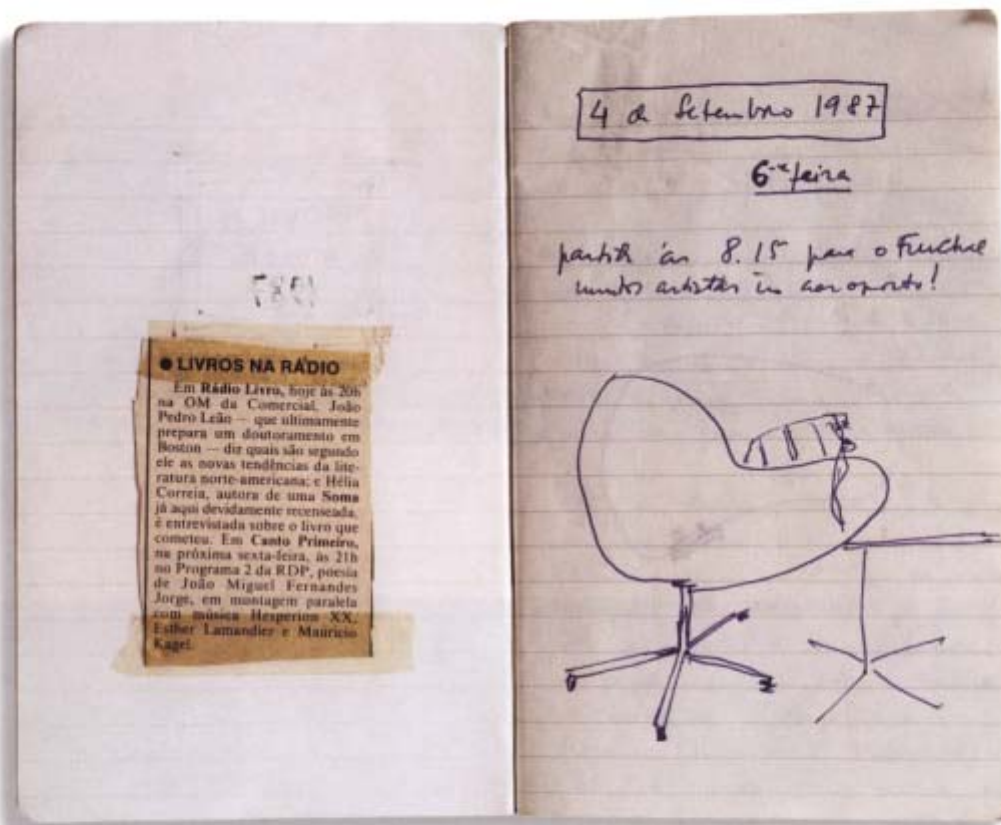 ● LIVROS NA RÁDIO
Em Rádio Livro, hoje às 20h
na OM da Comercial, João
Pedro Leão — que ultimamente
prepara um doutoramento em
Boston — diz quais são segundo
ele as novas tendências da lite-
ratura norte-americana; e Hélia
Correia, autora de uma Soma
já aqui devidamente recenseada,
é entrevistada sobre o livro que
cometeu. Em Canto Primeiro,
na próxima sexta-feira, às 21h
no Programa 2 da RDP, poesia
de João Miguel Fernandes
Jorge, em montagem paralela
com música Hesperion XX,
Esther Lamandier e Mauricio
Kagel.
4 de Setembro 1987
6ª feira
partida às 8.15 para o Funchal
muitos artistas no aeroporto!